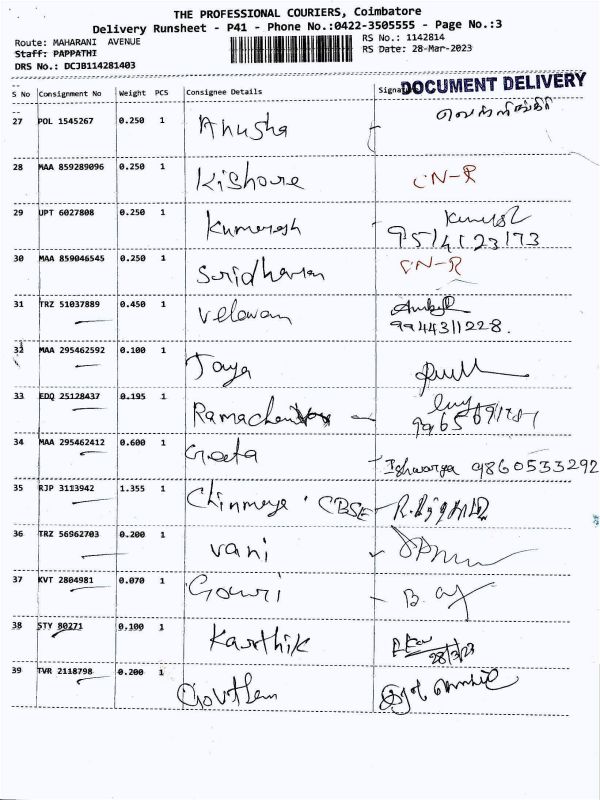 THE PROFESSIONAL COURIERS, Coimbatore
Delivery Runsheet - P41 - Phone No.:0422-3505555 - Page No.:3
Route: MAHARANI AVENUE
Staff: PAPPATHI
DRS No.: DCJB114281403
RS No.: 1142814
RS Date: 28-Mar-2023
DOCUMENT DELIVERY
S No Consignment No Weight PCS Consignee Details
27 POL 1545267 0.250 1 Anusha
28 MAA 859289096 0.250 1 Kishore CN-R
29 UPT 6027808 0.250 1 Kumaresh
9514123173
30 MAA 859046545 0.250 1 Sridharan CN-R
31 TRZ 51037889 0.450 1 Velavan
9944311228.
32 MAA 295462592 0.100 1 Jaya
33 EDQ 25128437 0.195 1
34 MAA 295462412 0.600 1 Geeta Ishwarya 9860533292
35 RJP 3113942 1.355 1 Chinmaya CBSE
36 TRZ 56962703 0.200 1 vani
37 KVT 2804981 0.070 1 Gowri
38 STY 80271 0.100 1 Karthik
28/3/23
39 TVR 2118798 0.200 1 Govtham